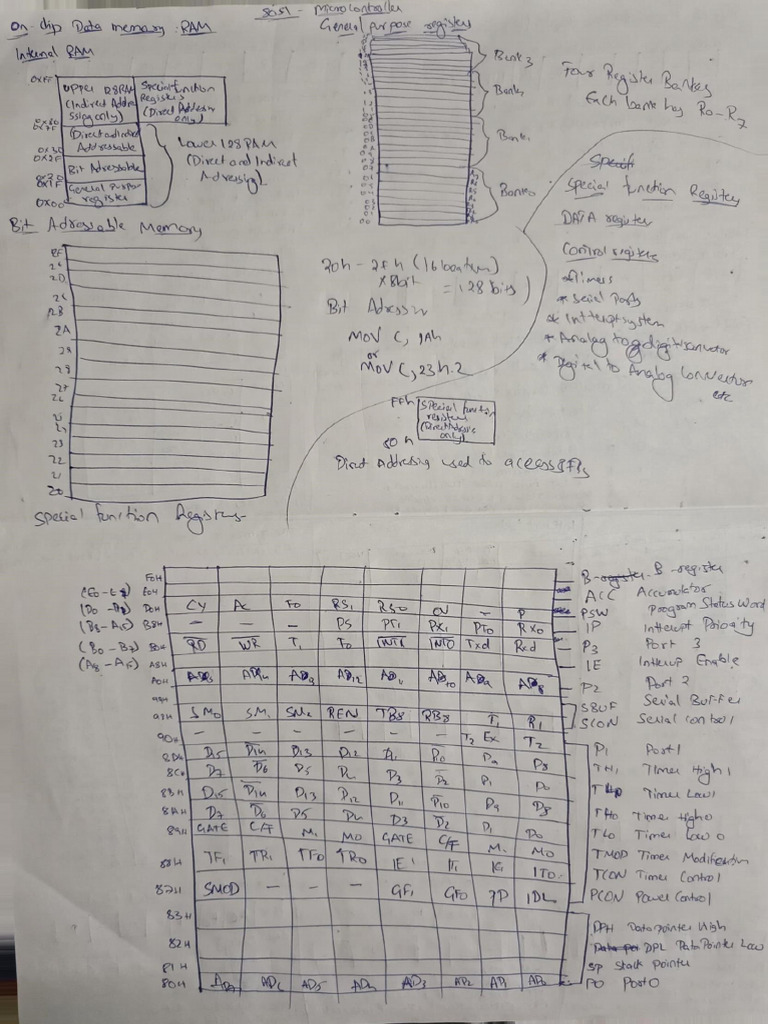 8051 - Microcontroller
On-chip Data memory RAM
Internal RAM
0xFF
Upper 128 RAM
(Indirect Addre
ssing only)
Special function
Registers
(Direct Addressin
only)
0x80
0x7F
(Direct and indirect
Addressable
0x30
0x2F
Bit Adressable
0x20
0x1F
General Purpose
register
0x00
Lower 128 RAM
(Direct and Indirect
Adressing)
General purpose register
Bank3
Bank1
Bank0
Four Register Banks
Each bank has R0-R7
Bit Adressable Memory
2F
2E
2D
2C
2B
2A
29
28
27
26
25
24
23
22
21
20
20h - 2Fh (16 location)
x8bit = 128 bits)
Bit Adressin
MOV C, 1Ah
or
MOV C, 23h.2
FFh
80h
Special function
registers
(Direct Address
only)
Direct Addressing used to access SFRs
Special function Registers
DATA register
Control registers
* Timers
* Serial Ports
* Intterupt system
* Analog to
* Digital to Analog Convector
etc
Special function Registers
F0H B-register
E0H ACC Accumulator
D0H CY AC F0 RS1 RS0 OV - P PSW Program Status Word
B8H - - - PS PT1 PX1 PT0 RX0 IP Interrupt Priority
B0H RD WR T1 T0 INT1 INT0 Txd Rxd P3 Port 3
A8H IE Interrup Enable
A0H AD12 AD11 AD10 AD9 AD8 P2 Port 2
99H SBUF Serial Buffer
SM0 SM1 SM2 REN TB8 RB8 T1 R1 SCON Serial control
90H - - - - - - T2 Ex T2 P1 Port 1
8DH D15 D14 D13 D12 D11 D10 D9 D8 TH1 Timer High 1
8CH D7 D6 D5 D4 D3 D2 D1 D0 Timer Low 1
8BH D15 D14 D13 D12 D11 D10 D9 D8 TH0 Timer High 0
8AH D7 D6 D5 D4 D3 D2 D1 D0 TL0 Timer Low 0
89H GATE C/T M1 M0 GATE C/T M1 M0 TMOD Timer Modification
88H TF1 TR1 TF0 TR0 IE1 IT1 IE1 IT0 TCON Timer Control
87H SMOD - - - GF1 GF0 PD IDL PCON Power Control
83H DPH Data pointer High
82H DPL Data Pointer Low
81H SP Stack Pointer
80H AD7 AD6 AD5 AD4 AD3 AD2 AD1 AD0 P0 Port 0